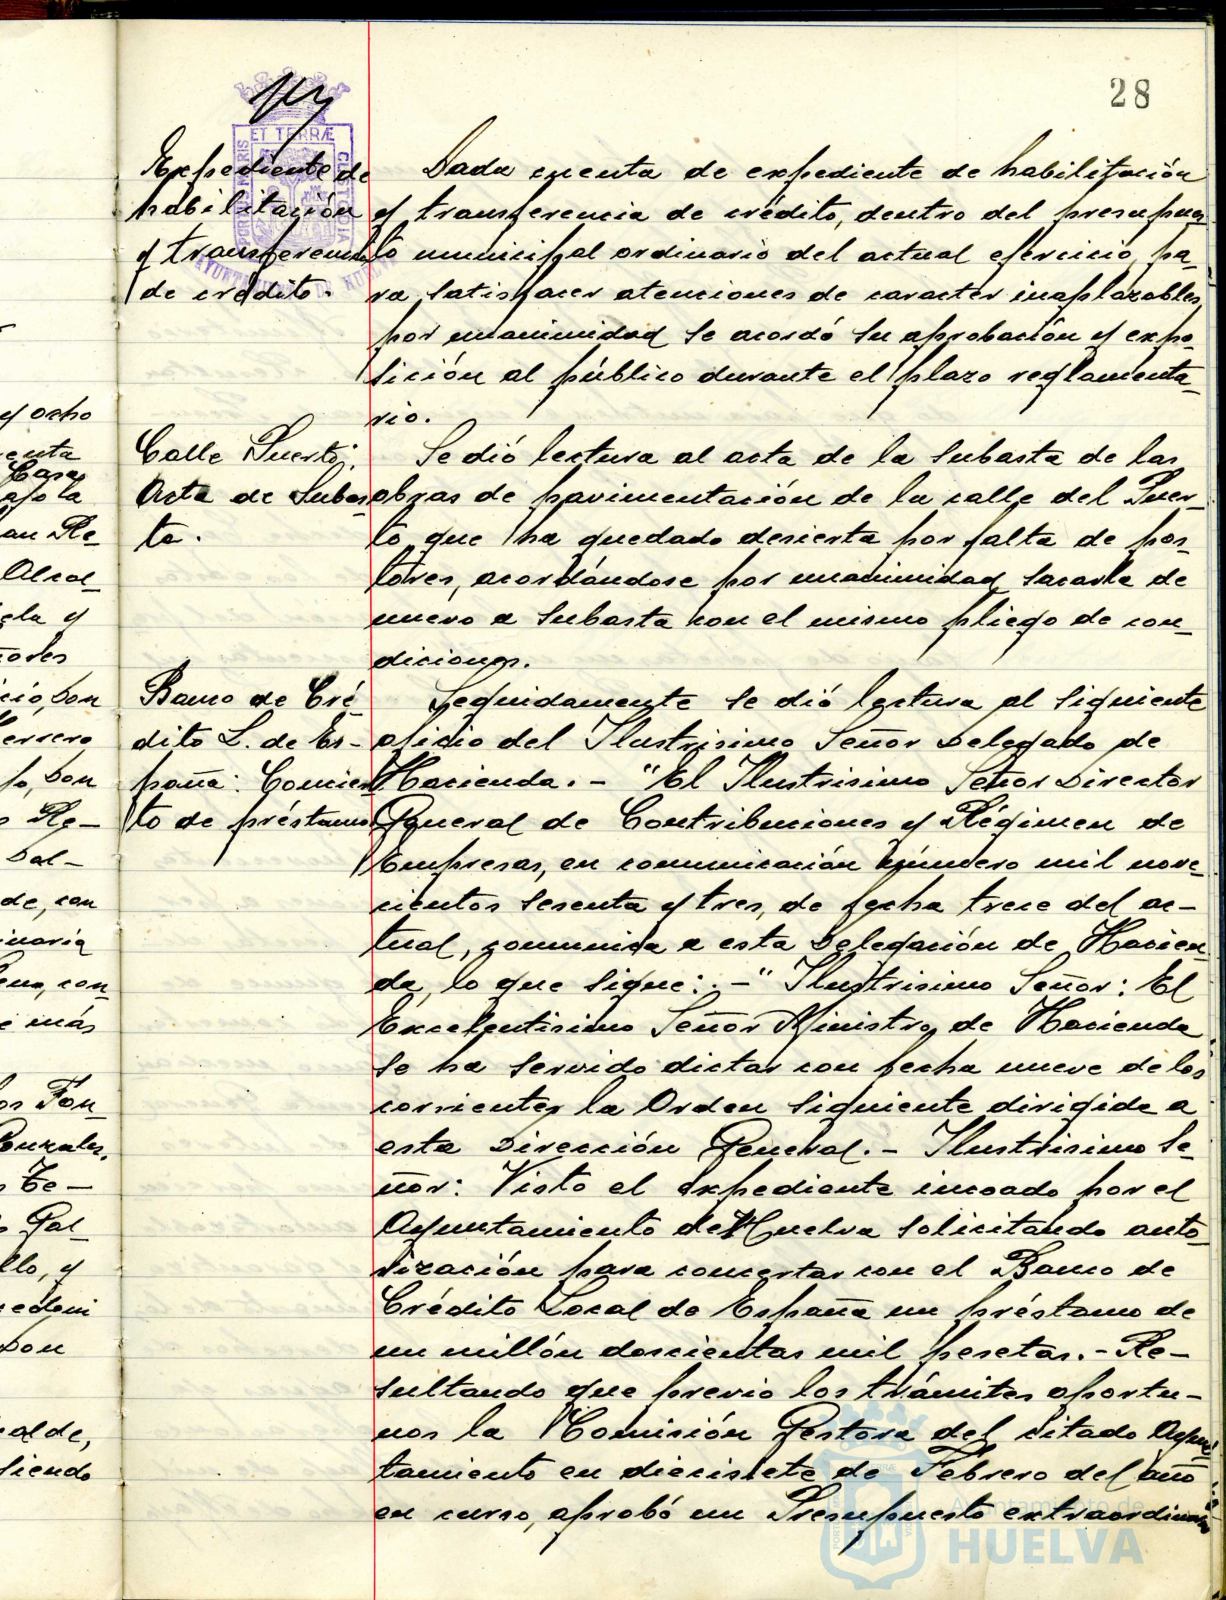 28
ET TERRÆ
Expediente de
habilitación
y transferencia
de crédito.
Dada cuenta de expediente de habilitación
y transferencia de crédito, dentro del presupues-
to municipal ordinario del actual ejercicio, pa-
ra satisfacer atenciones de caracter inaplazables,
por unanimidad se acordó su aprobación y expo-
sición al público durante el plazo reglamenta-
rio.
Calle Puerto:
Acta de Subas-
ta.
Se dió lectura al acta de la subasta de las
obras de pavimentación de la calle del Puer-
to que ha quedado desierta por falta de pos-
tores, acordándose por unanimidad sacarla de
nuevo a subasta con el mismo pliego de con-
diciones.
Banco de Cré-
dito L. de Es-
paña: Concier-
to de préstamo
Seguidamente se dió lectura al siguiente
oficio del Ilustrisimo Señor Delegado de
Hacienda. - "El Ilustrisimo Señor Director
General de Contribuciones y Régimen de
Empresas, en comunicación número mil nove-
cientos sesenta y tres, de fecha trece del ac-
tual, comunica a esta Delegación de Hacien-
da, lo que sigue: - " Ilustrisimo Señor: El
Excelentisimo Señor Ministro de Hacienda
se ha servido dictar con fecha nueve de los
corrientes la Orden siguiente dirigida a
esta Dirección General. - Ilustrisimo Se-
ñor: Visto el expediente incoado por el
Ayuntamiento de Huelva solicitando auto-
rización para concertar con el Banco de
Crédito Local de España un préstamo de
un millón doscientas mil pesetas. - Re-
sultando que previo los trámites oportu-
nos la Comisión Gestora del citado Ayun-
tamiento en diecisiete de Febrero del año
en curso, aprobó un Presupuesto extraordinario
y ocho
Casa
an Re-
Alcal-
ela y
ñores
icio, Don
Don
Re-
Sal-
de, con
inaria
con-
e más
os Fon-
Gonzales.
Te-
Gal-
llo, y
Don
alde,
siendo
Ayuntamiento de
HUELVA